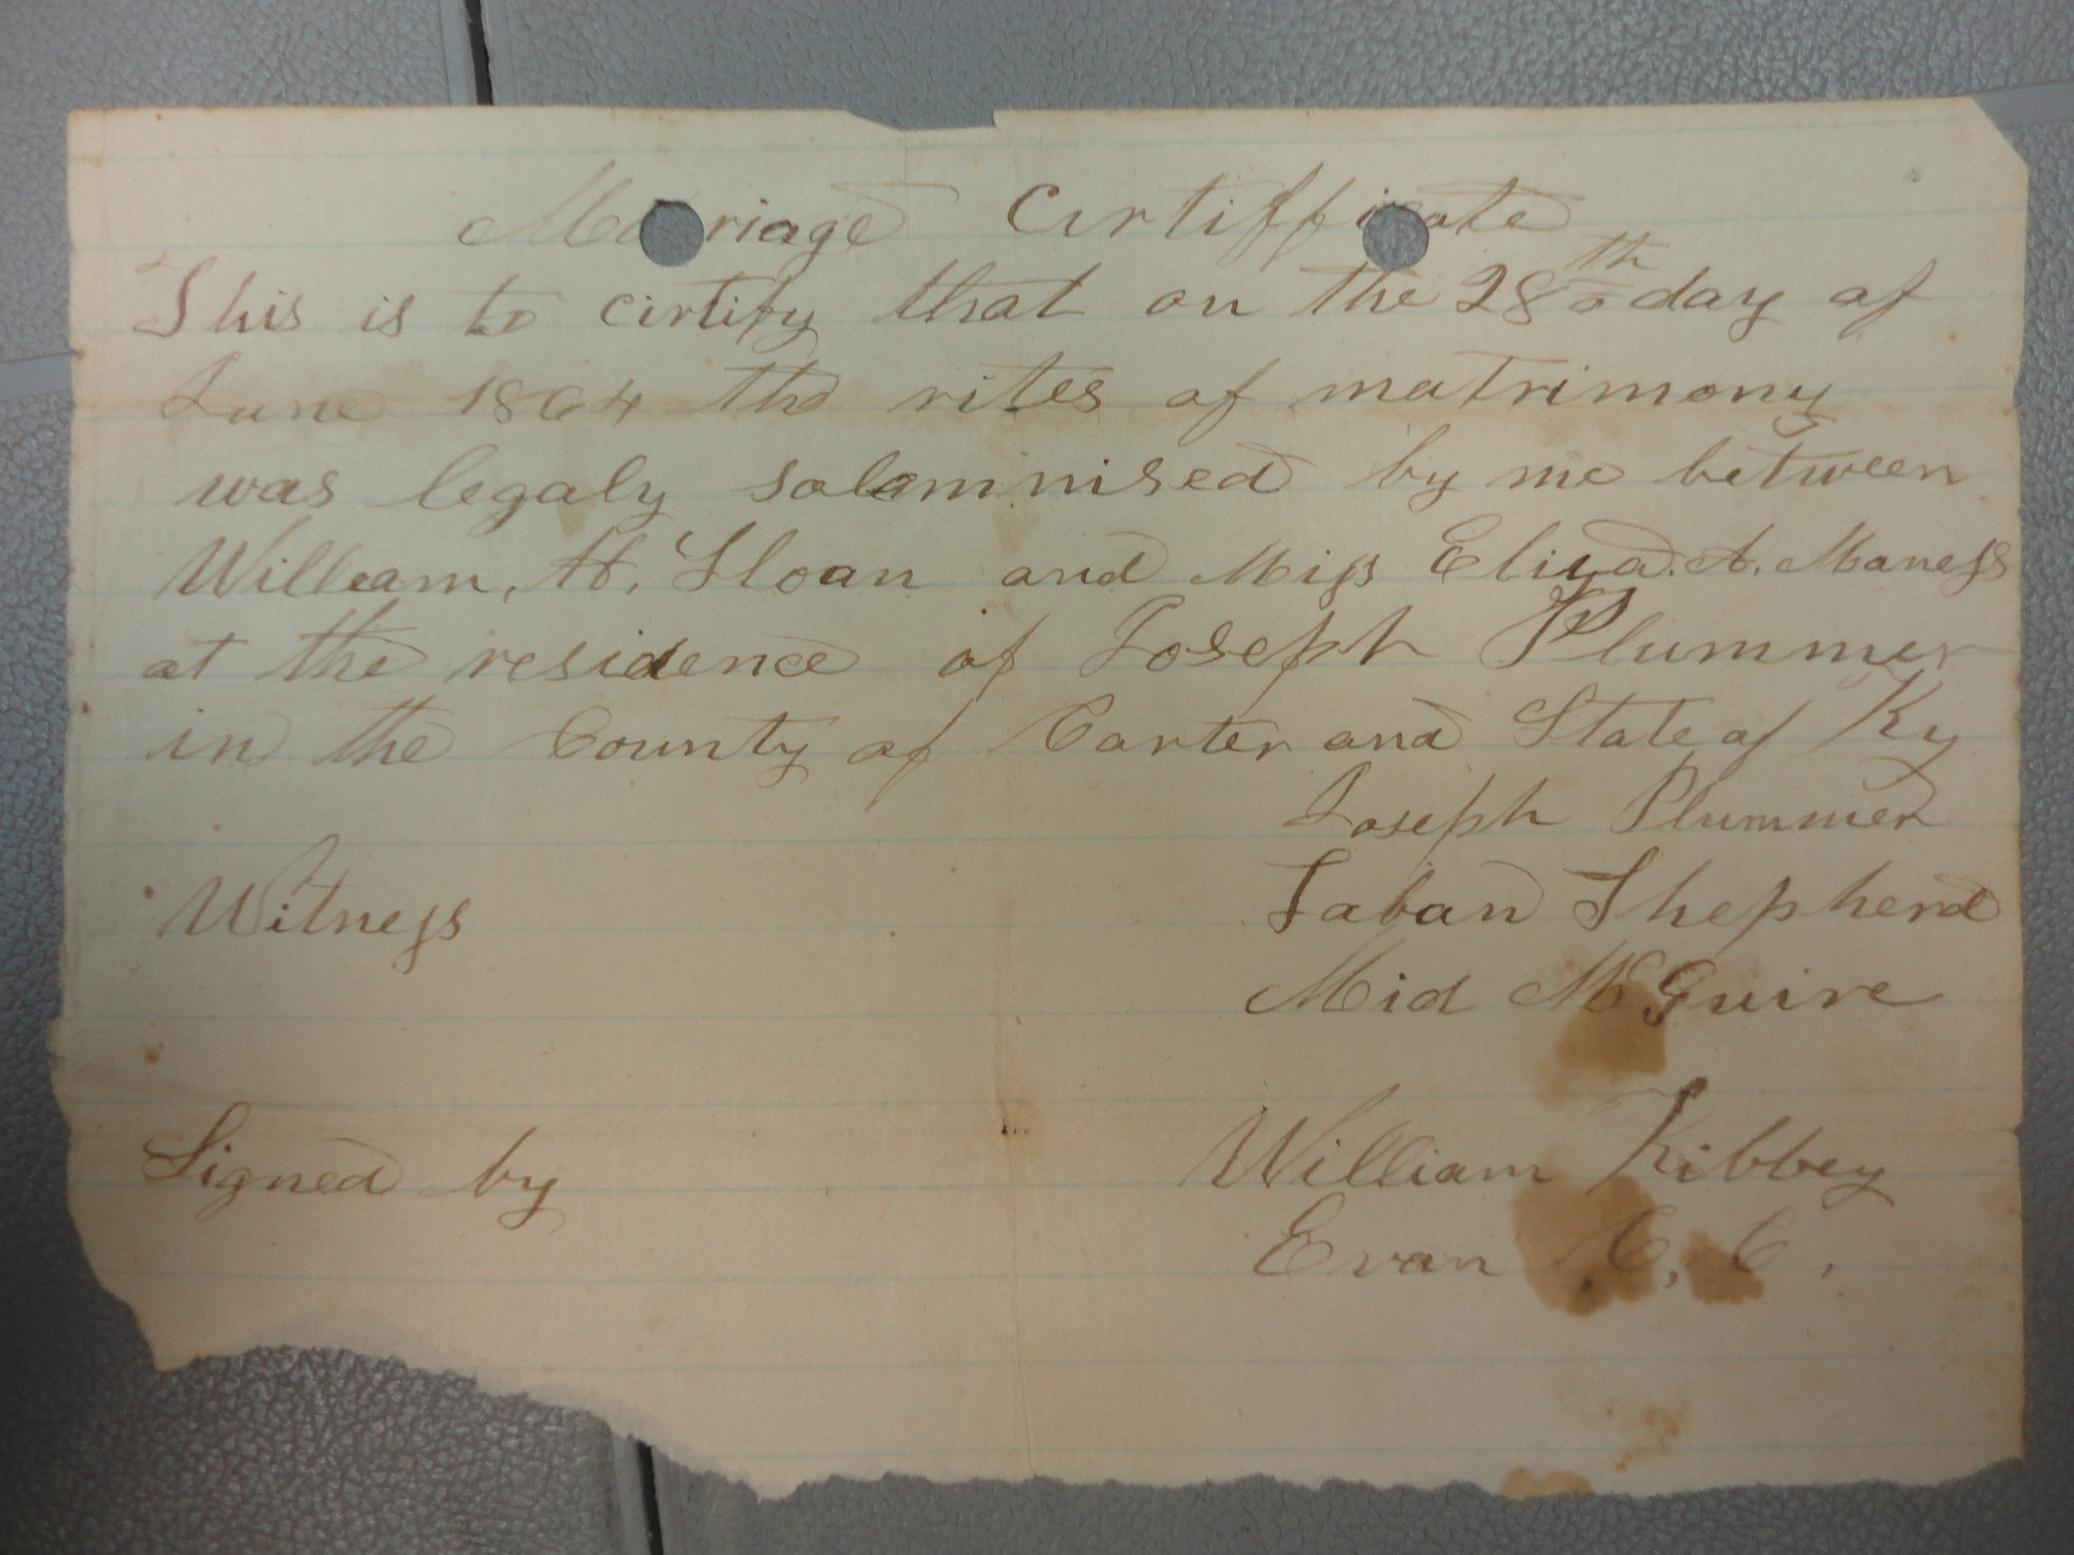 Marriage Cirtifficate
This is to cirtify that on the 28th day of
June 1864 the rites of matrimony
was legaly solemnised by me between
William, H, Sloan and Miss Eliza. A. Maness
at the residence of Joseph Plummer
in the County of Carter and State of Ky
Joseph Plummer
Witness Laban Shepherd
Mid McGuire
Signed by William Kibbey
Evan C, C,